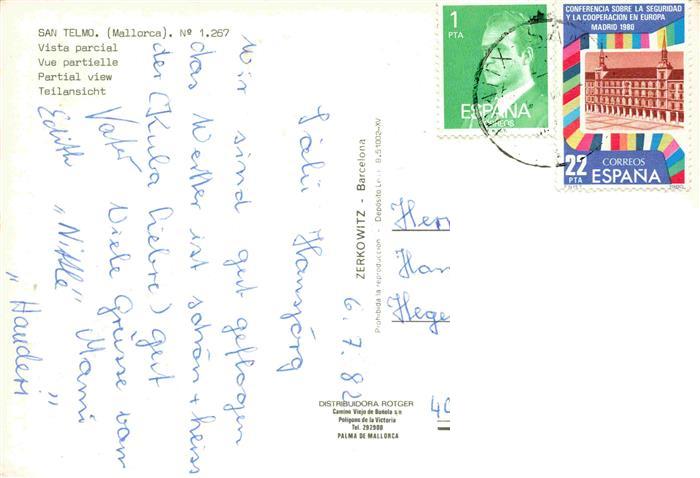 SAN TELMO. (Mallorca). Nº 1.267
Vista parcial
Vue partielle
Partial view
Teilansicht
6.7.82
Salü Hansjörg
Wir sind gut geflogen
das Wetter ist schön + heiss
der (Kuba Liebre) gut
Viele Grüsse von
Vati Mami
Edith "Nittle"
"Hauderi
ZERKOWITZ - Barcelona
Prohibida la reproduccion - Depósito Legal B. 51002-XV
DISTRIBUIDORA ROTGER
Camino Viejo de Buñola s/n
Poligono de la Victoria
Tel. 292900
PALMA DE MALLORCA
1
PTA
ESPAÑA
CORREOS
CONFERENCIA SOBRE LA SEGURIDAD
Y LA COOPERACION EN EUROPA
MADRID 1980
22
PTA
CORREOS
ESPAÑA
1980
Herr
Han
Hege
40